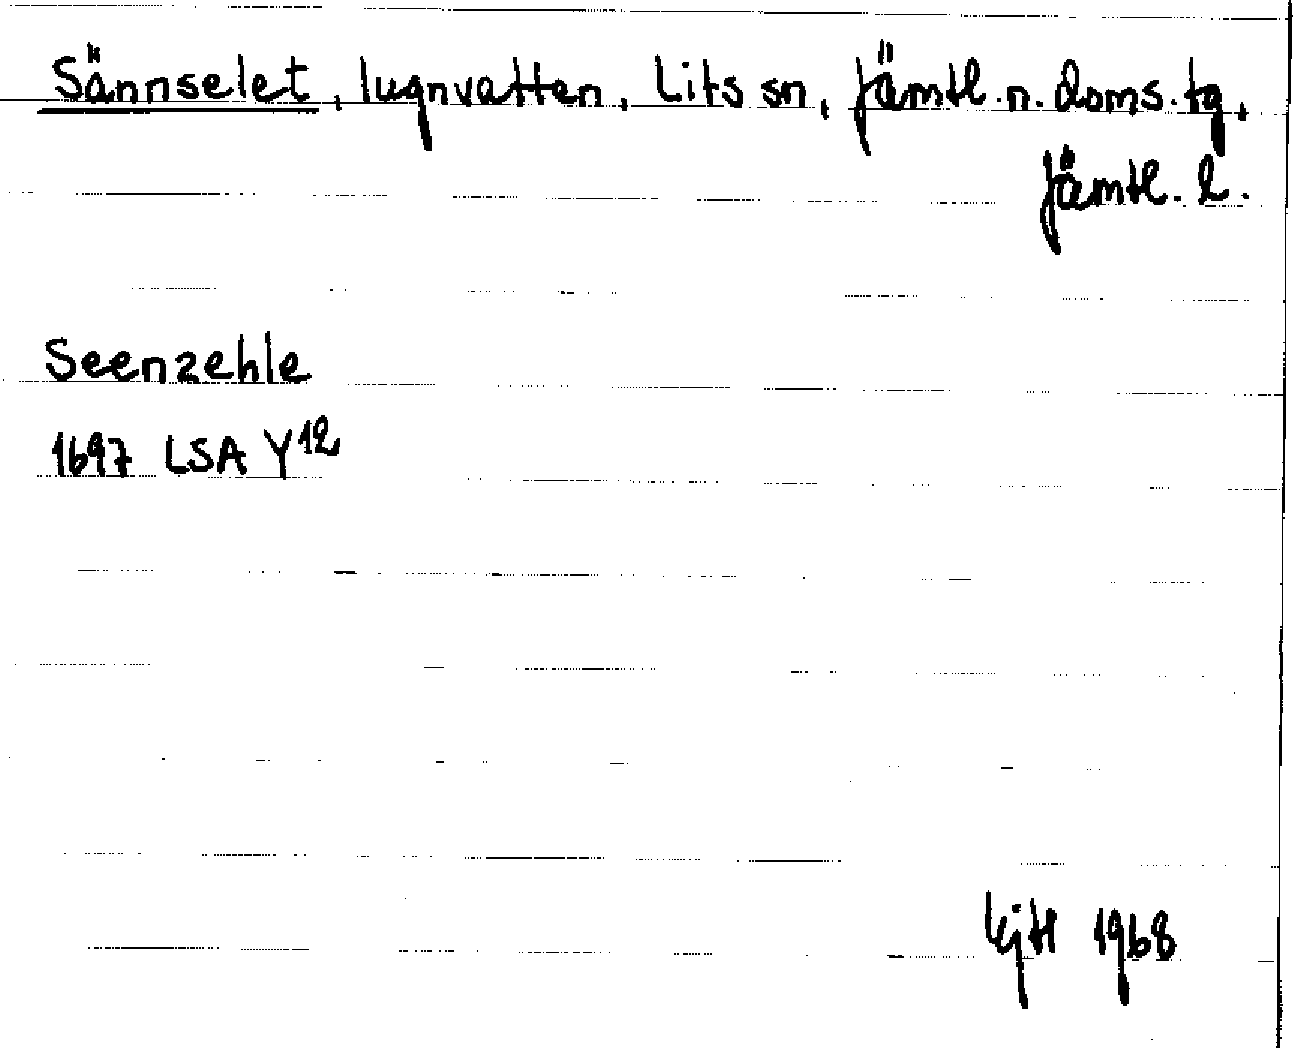 Sännselet, lugnvatten, Lits sn, Jämtl. n. doms. tg,
Jämtl. l.
Seenzehle
1697 LSA Y12
1968